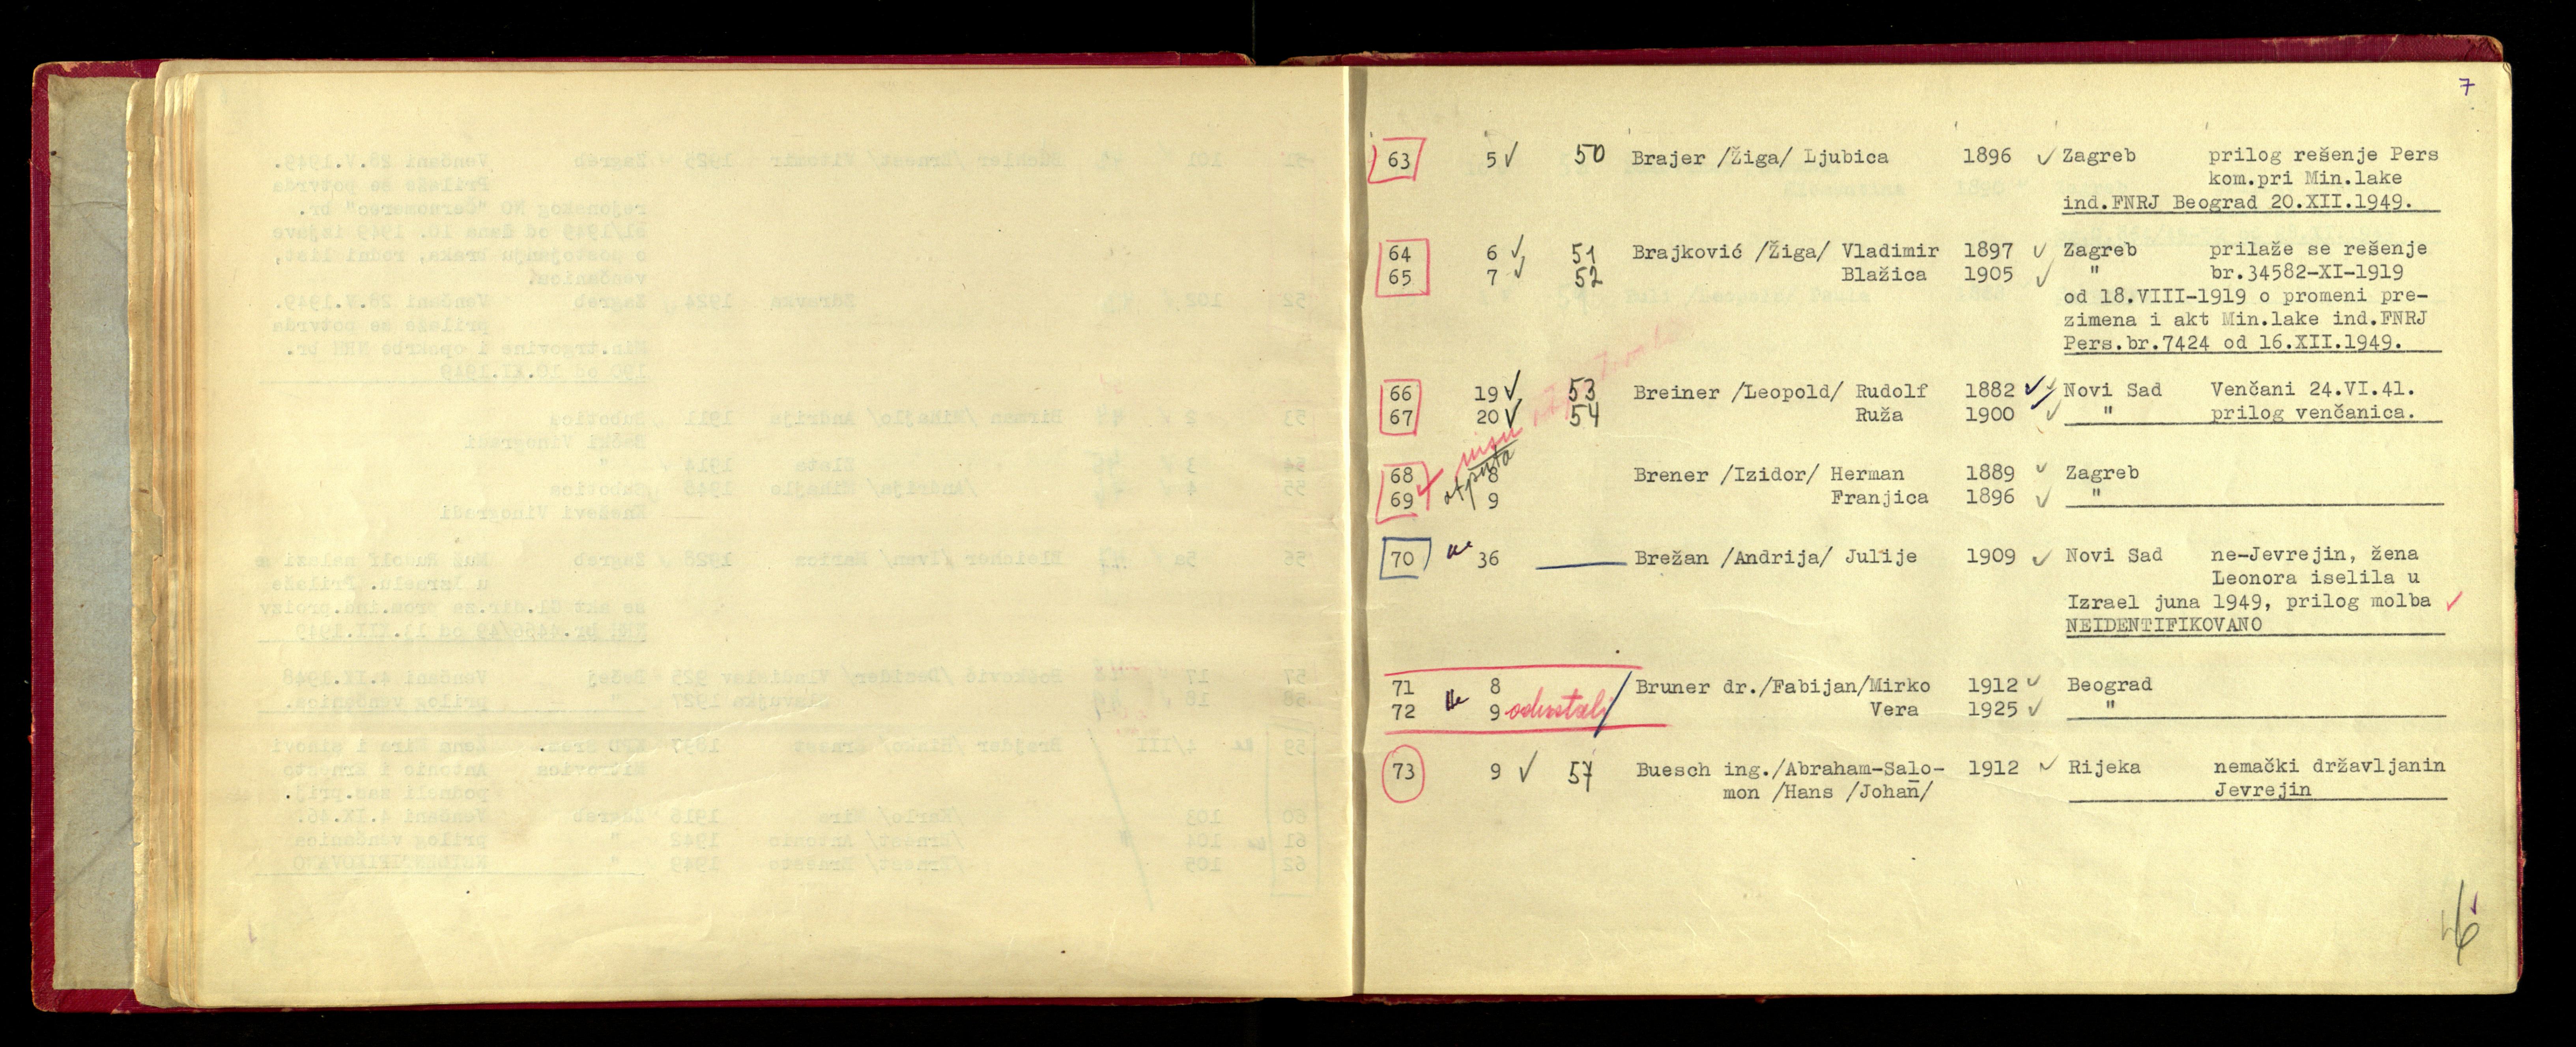 7
63 5✓ 50 Brajer /Žiga/ Ljubica 1896 ✓ Zagreb prilog rešenje Pers
kom.pri Min.lake
ind.FNRJ Beograd 20.XII.1949.
64 6 ✓ 51 Brajković /Žiga/ Vladimir 1897 ✓ Zagreb prilaže se rešenje
65 7 ✓ 52 Blažica 1905 ✓ " br.34582-XI-1919
od 18.VIII-1919 o promeni pre-
zimena i akt Min.lake ind.FNRJ
Pers.br.7424 od 16.XII.1949.
66 19✓ 53 Breiner /Leopold/ Rudolf 1882 ✓✓ Novi Sad Venčani 24.VI.41.
67 20✓ 54 Ruža 1900 ✓ " prilog venčanica.
nisu
68 8 Brener /Izidor/ Herman 1889 ✓ Zagreb
69 9 Franjica 1896 ✓ "
70 ne 36 Brežan /Andrija/ Julije 1909 ✓ Novi Sad ne-Jevrejin, žena
Leonora iselila u
Izrael juna 1949, prilog molba ✓
NEIDENTIFIKOVANO
71 8 Bruner dr./Fabijan/Mirko 1912 ✓ Beograd
72 ne 9 odustali Vera 1925 ✓ "
73 9 ✓ 57 Buesch ing./Abraham-Salo- 1912 ✓ Rijeka nemački državljanin
mon /Hans /Johan/ Jevrejin